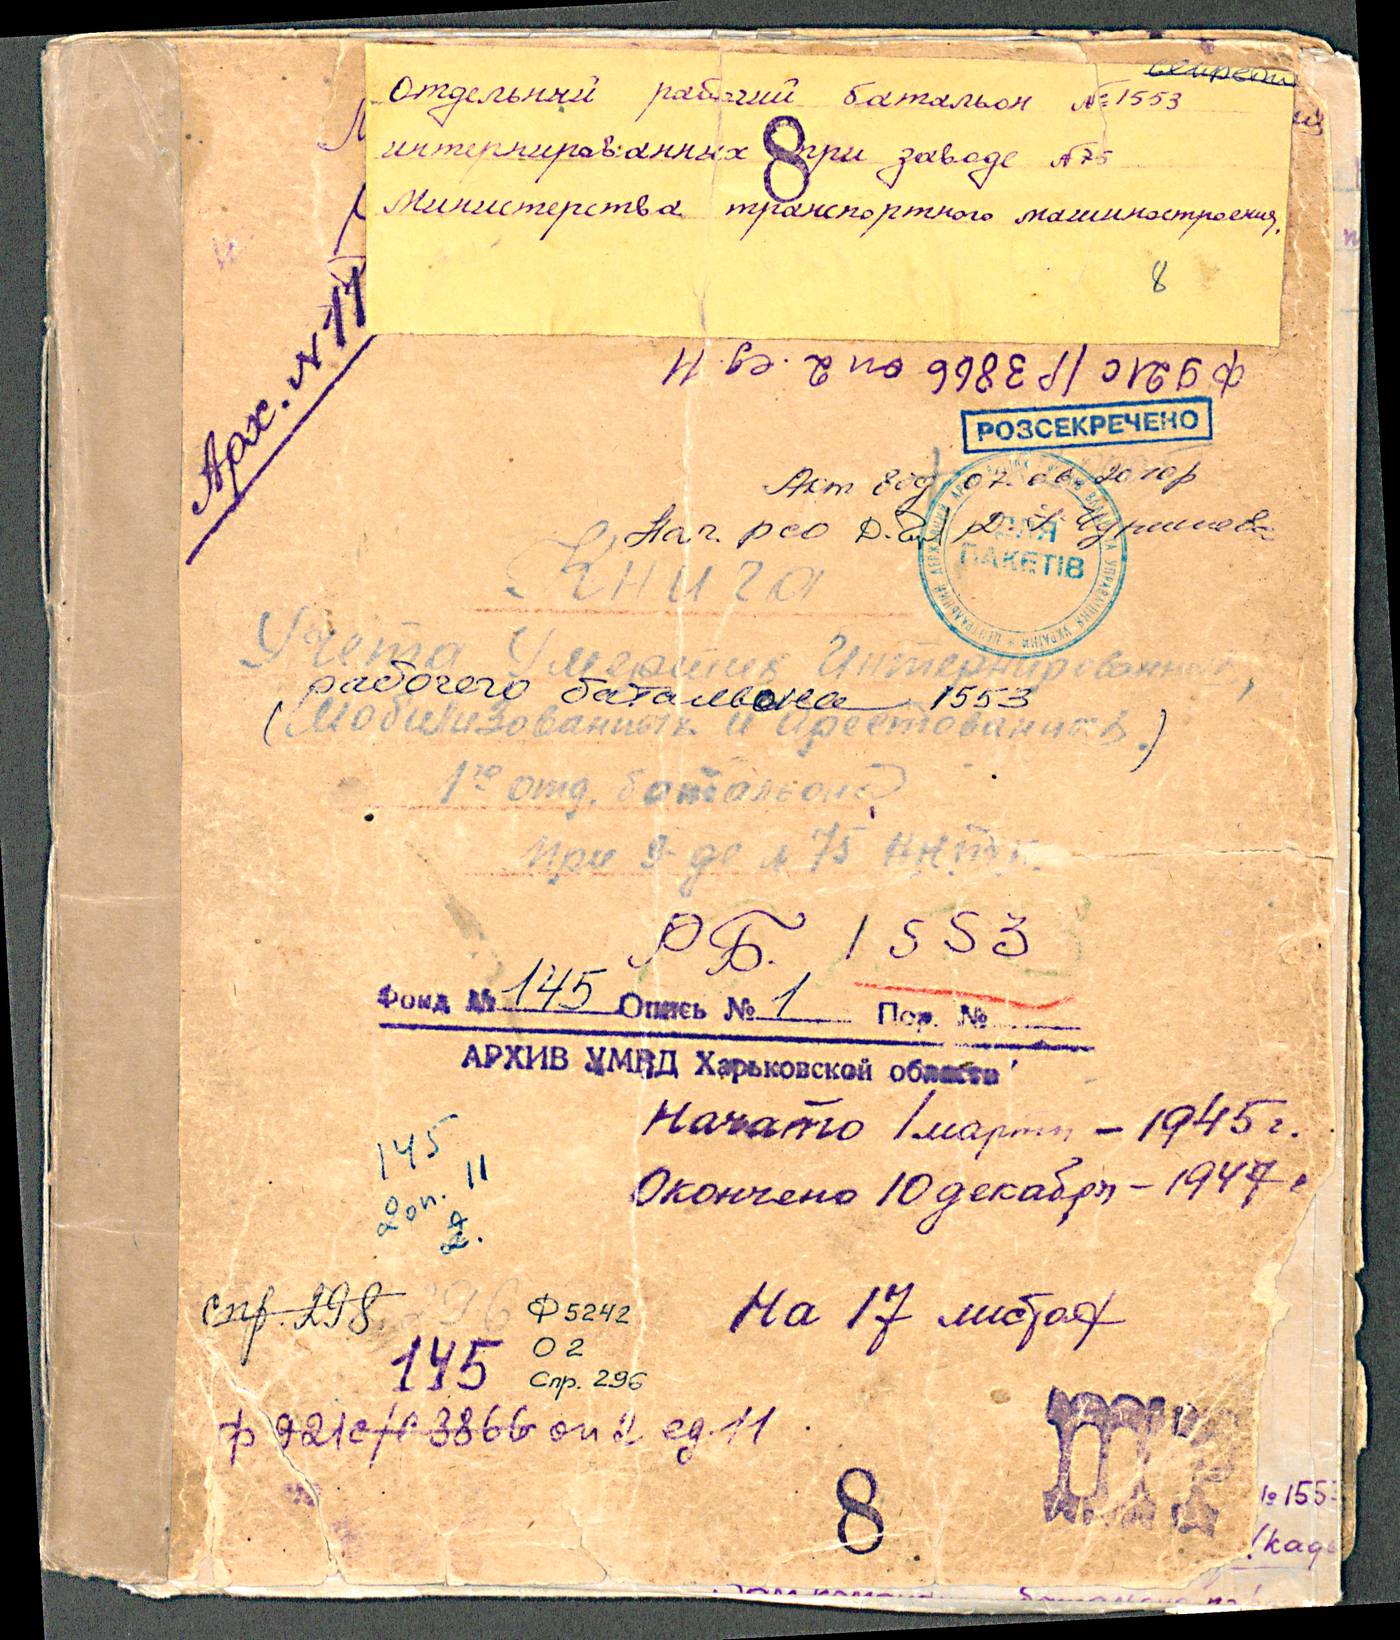 Отдельний рабочий батальон №1553
интернированных при заводе №75
8
Министерства транспортного машиностроения.
8
Арх. №11
ф 921с/Р3866 оп 2. ед. 11
РОЗСЕКРЕЧЕНО
Акт 8
Нач. рсо
ДЛЯ ПАКЕТІВ
Книга
Учета Умерших Интернированных,
рабочего батальона 1553
(Мобилизованных и Арестованных.)
1го отд. батальона
При З-де №75 ННТП.
РБ. 1553
Фонд № 145 Опись № 1 Пор. №
АРХИВ УМВД Харьковской области
Начато 1 марта – 1945 г.
Окончено 10 декабря – 1947 г
145
2 оп. 11
спр. 298 296
Ф 5242
О 2
Спр. 296
На 17 листах
145
ф 921с/Р 3866 оп 2 ед 11
8
№ 1553